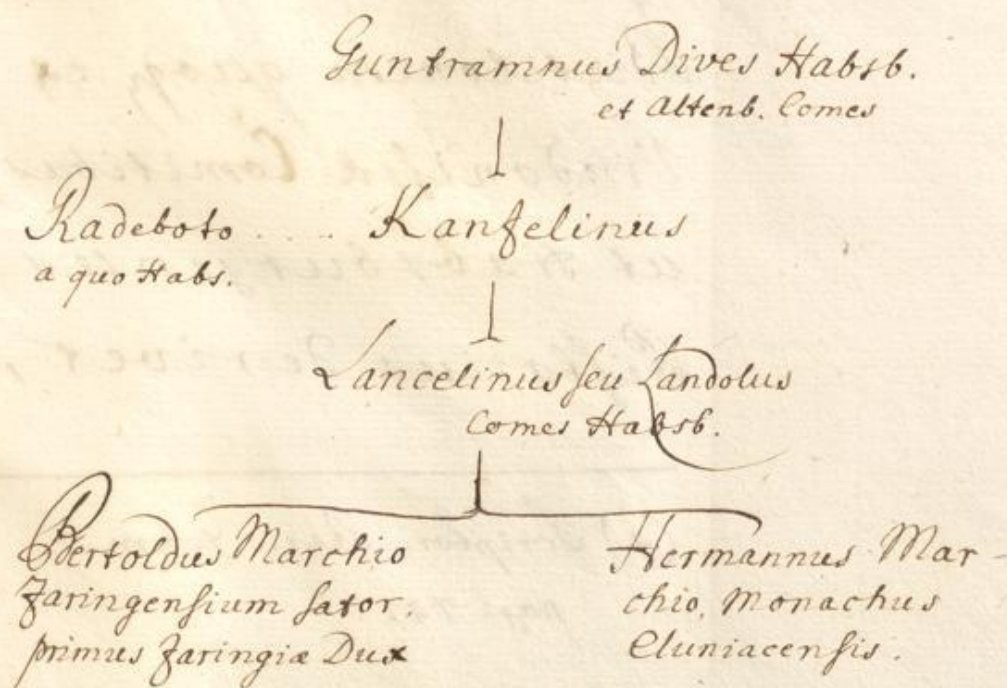 Guntramnus Dives Habsb.
et Altenb. Comes
Radeboto .... Kanzelinus
a quo Habs.
Lancelinus seu Landolus
Comes Habsb.
Bertoldus Marchio
Zaringensium sator.
primus Zaringiæ Dux
Hermannus Mar-
chio, Monachus
Cluniacensis.